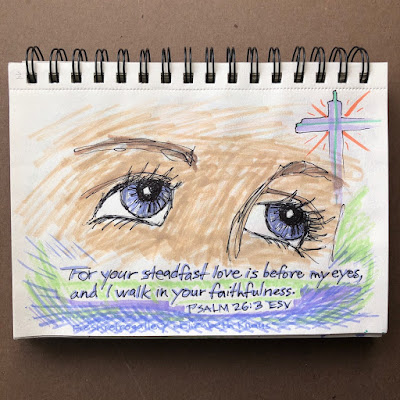 For your steadfast love is before my eyes,
and I walk in your faithfulness.
PSALM 26:3 ESV